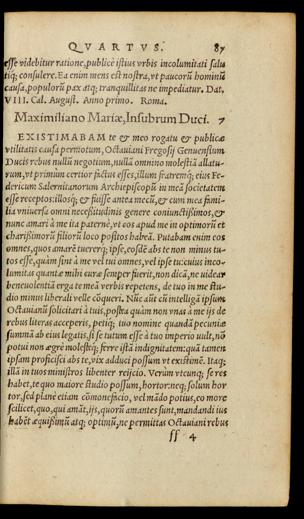 QVARTVS. 87
esse videbitur ratione, publicè istius vrbis incolumitati salu
tiq; consulere. Ea enim mens est nostra, vt paucorũ hominũ
causa, populorũ pax atq; tranquillitas ne impediatur. Dat.
VIII. Cal. August. Anno primo. Roma.
Maximiliano Mariæ, Insubrum Duci. 7
EXISTIMABAM te & meo rogatu & publicæ
vtilitatis causa permotum, Octauiani Fregosij Genuensium
Ducis rebus nullũ negotium, nullã omnino molestiã allatu-
rum, vt primùm certior factus esses, illum fratremq; eius Fe-
dericum Salernitanorum Archiepiscopũ in meã societatem
esse receptos: illosq; & fuisse antea mecũ, & cum mea fami-
lia vniuersa omni necessitudinis genere coniunctissimos, &
nunc amari à me ita paternè, vt eos apud me in optimorũ et
charissimorũ filiorũ loco positos habeã. Putabam enim eos
omnes, quos amarẽ tuererq; ipse, eosdẽ abs te non minus tu-
tos esse, quàm sint à me vel tui omnes, vel ipse tu: cuius inco-
lumitas quantæ mihi curæ semper fuerit, non dicã, ne videar
beneuolentiã erga te meã verbis repetens, de tuo in me stu-
dio minus liberali velle cõqueri. Nũc aũt cũ intelligã ipsum
Octauianũ solicitari à tuis, postra quàm non vnas à me ijs de
rebus literas acceperis, petiq; tuo nomine quandã pecuniæ
summã ab eius legatis, si se tutum esse à tuo imperio uult, nõ
potui non ægrè molesteq; ferre istã indignitatem: quã tamen
ipsam proficisci abs te, vix adduci possum vt existimẽ. Itaq;
illã in tuos ministros libenter reijcio. Verùm vtcunq; se res
habet, te quo maiore studio possum, hortor: neq; solum hor
tor, sed planè etiam cõmonefacio, vel mãdo potius, eo more
scilicet, quo, qui amãt, ijs, quorũ amantes sunt, mandandi ius
habẽt æquissimũ atq; optimũ, ne permittas Octauiani rebus
ff 4